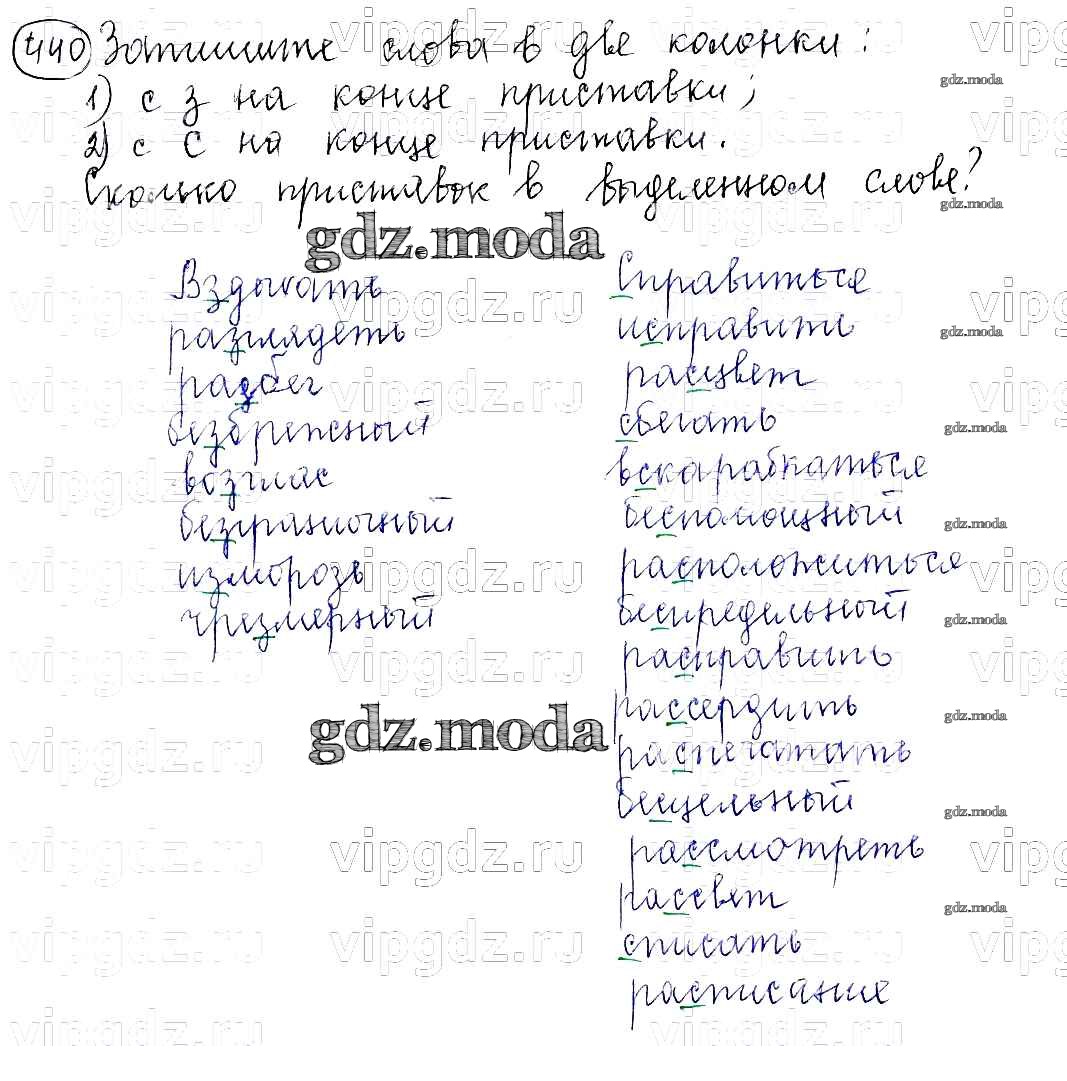 440 Запишите слова в две колонки:
1) с з на конце приставки;
2) с с на конце приставки.
Сколько приставок в выделенном слове?
gdz.moda
Вздыхать Справиться
разглядеть исправить
разбег расцвет
безбрежный сбегать
возглас вскарабкаться
безграничный беспомощный
изморозь расположиться
чрезмерный беспредельный
расправить
рассердить
gdz.moda
распечатать
бесцельный
рассмотреть
рассвет
списать
расписание
vipgdz.ru